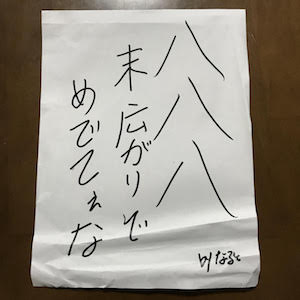 八八八
末広がりで
めでてぇな
byなると